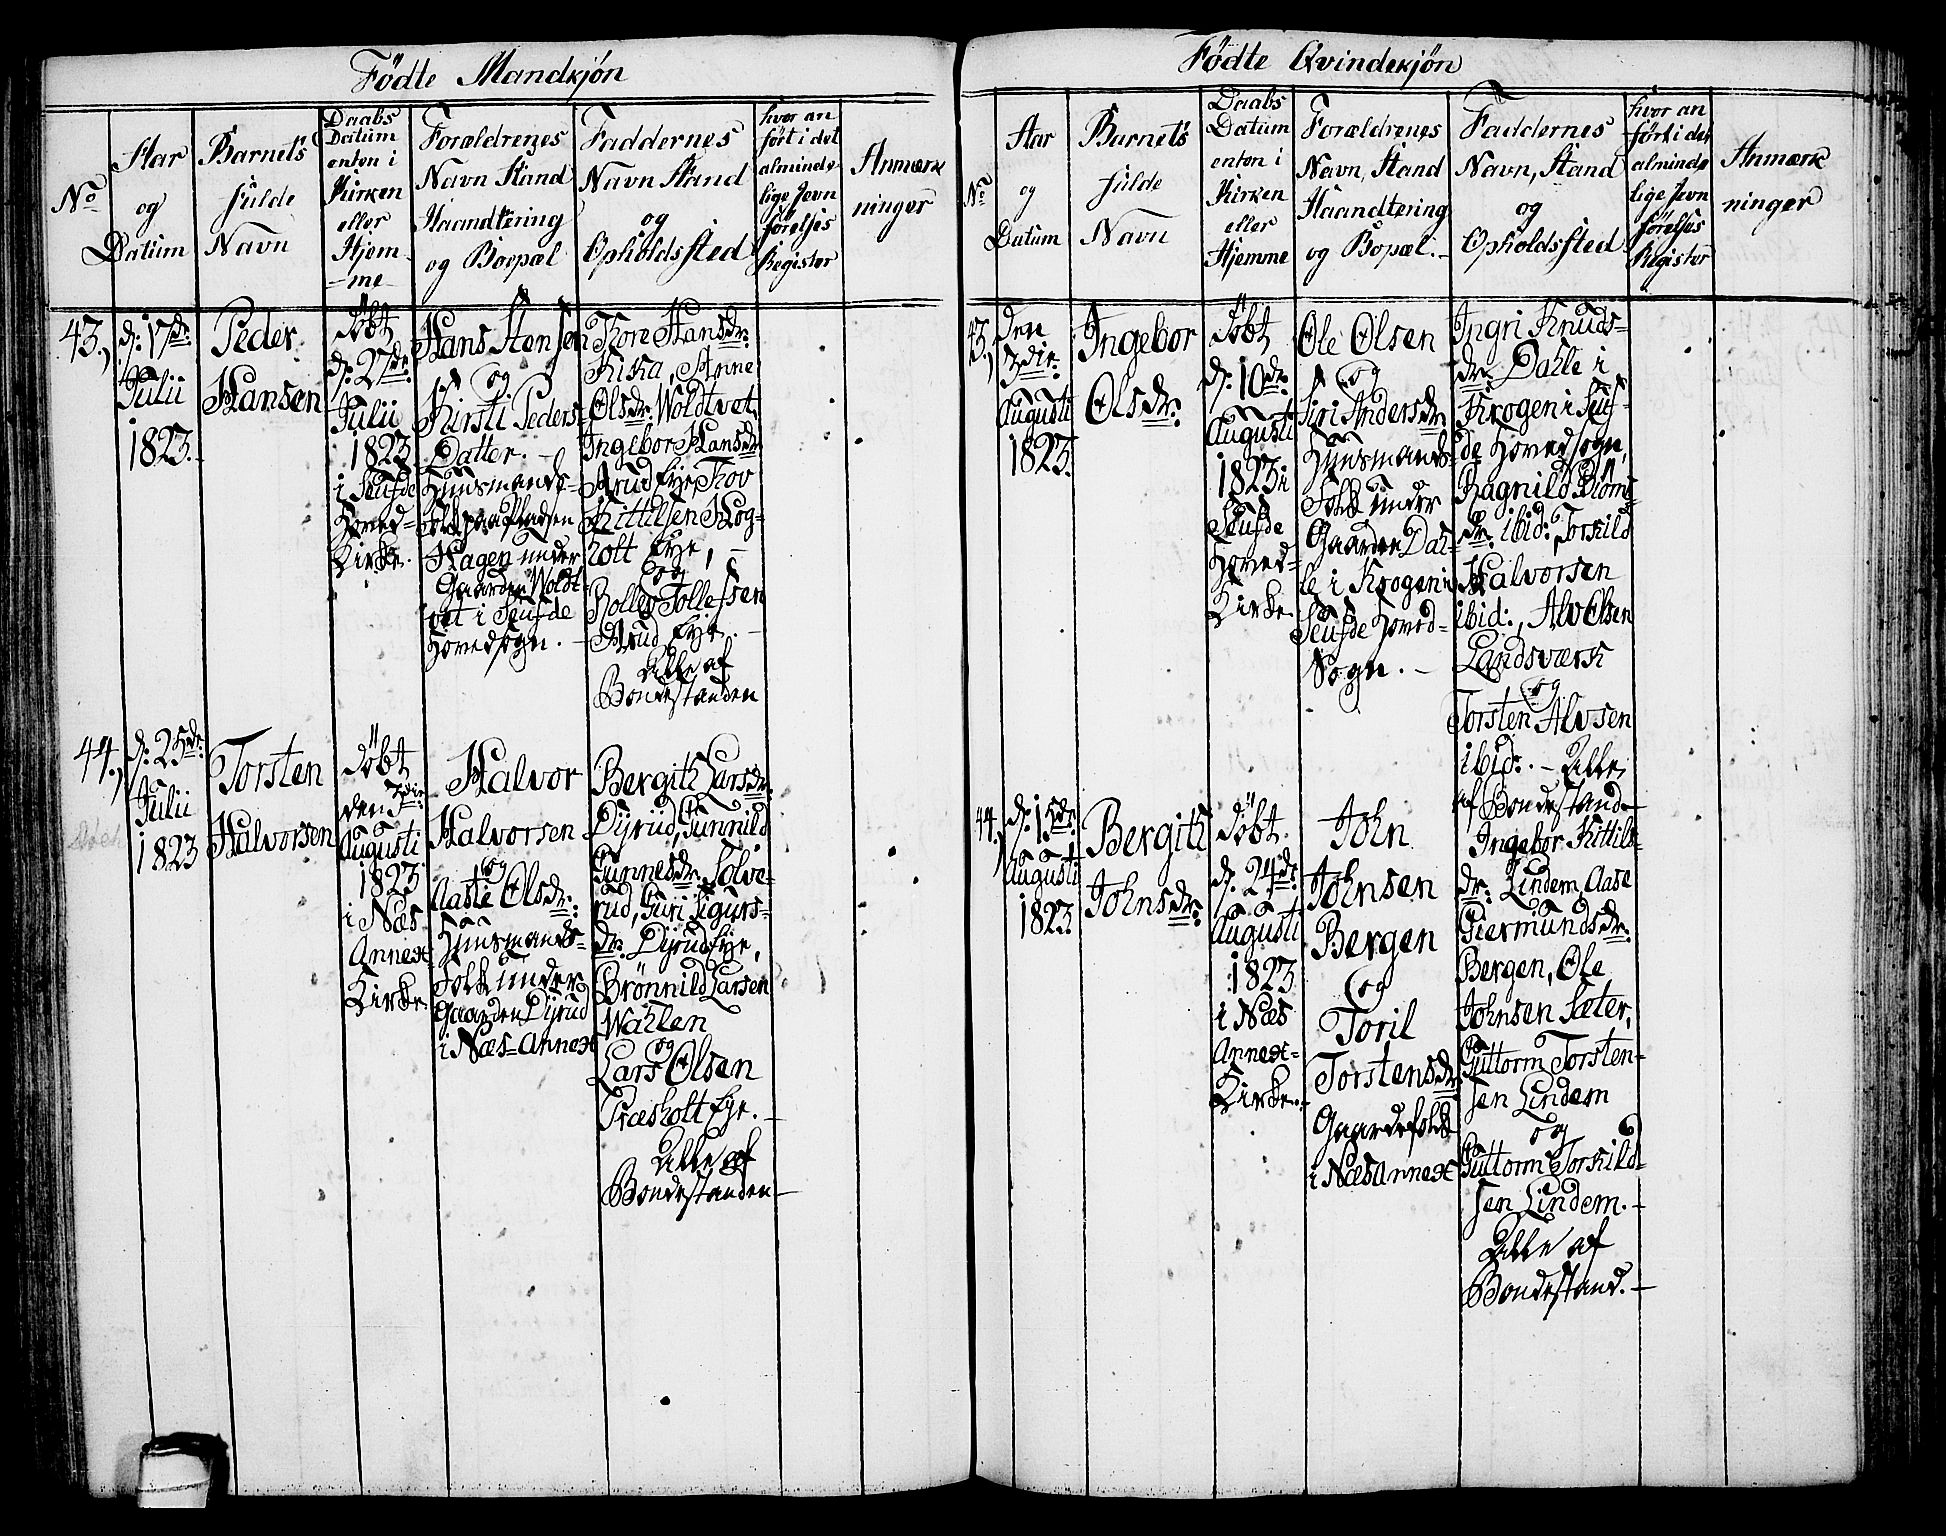 Födte Mandkjön
No
Aar
og
Datum
Barnets
fulde
Navn
Daabs
Datum
enten i
Kirken
eller
Hjem-
-me-
Forældrenes
Navn Stand
Haandtering
og Boepæl
Faddernes
Navn Stand
og
Opholdssted
hvor an
ført i det
alminde
lige Jevn
førelses
Register
Anmærk
ninger
43.,
d: 17de
Julii
1823.
Peder
Hansen
Döbt
d: 27de
Julii
1823
i Seufde
Hoved-
Kirke.
Hans Hansen
og
Kirsti Peders-
Datter. -
Huusmands-
Folk paa Pladsen
Hagen under
Gaarden Woldt-
vet i Seufde
Hovedsogn. -
Tore Hansdr:
Kiska, Anne
Olsdr: Woldtvet,
Ingebor Hansdr:
Aarud Eye, Tov
Kittilsen Hog-
holt Eye, -
og
Rollev Tollefsen
Aarud Eye. -
Alle af
Bondestanden
44.,
d: 25de
Julii
1823
Torsten
Halvorsen
Döbt
den 3die
Augusti
1823
i Næs
Annex
Kirke.
Halvor
Halvorsen
og
Aaste Olsdr:
Huusmands-
Folk under
Gaarden Dyrud
i Næs=Annex
Bergith Larsdr:
Dyrud, Gunnild
Gunnesdr: Solve-
rud, Guri Sigurs-
dr: Dyrud Eye,
Brönnild Larsen
Wahlen
og
Lars Olsen
Træsholt Eye. -
Alle af
Bondestanden-
Födte Qvindekjön
No
Aar
og
Datum
Barnets
fulde
Navn
Daabs
Datum
enten i
Kirken
eller
Hjemme
Forældrenes
Navn, Stand
Haandtering
og Bopæl.-
Faddernes
Navn, Stand
og
Opholdssted
hvor an
ført i det
alminde
lige Jevn
førelses
Register
Anmærk
ninger
43.,
Den
3die
Augusti
1823.
Ingebor
Olsdr:
Döbt
d: 10de
Augusti
1823 i
Seufde
Hoved-
Kirke.
Ole Olsen
og
Siri Andersdr
Huusmands-
Folk under
Gaarden Dah-
le i Krogen i
Seufde Hoved-
Sogn. -
Ingri Knuds-
dr: Dahle i
Krogen i Seuf-
de Hovedsogn,
Ragnild
dr: ibid: Torkild
Halvorsen
ibid:, Alv Olsen
Landsværk
og
Torsten Alvsen
ibid:. - Alle
af Bondestand-
44.,
d: 15de
Augusti
1823.
Bergith
Johnsdr:
Döbt
d: 24de
Augusti
1823
i Næs
Annex-
Kirke.
John
Johnsen
Bergen
og
Toril
Torstensdr:
Gaardefolk
i Næs Annex
Ingebor Kittils-
dr: Lindem, Aase
Giermundsdr:
Bergen, Ole
Johnsen Sæter,
Guttorm Torsten-
sen Lindem
og
Guttorm Torkild-
sen Lindem. -
Alle af
Bondestand. -